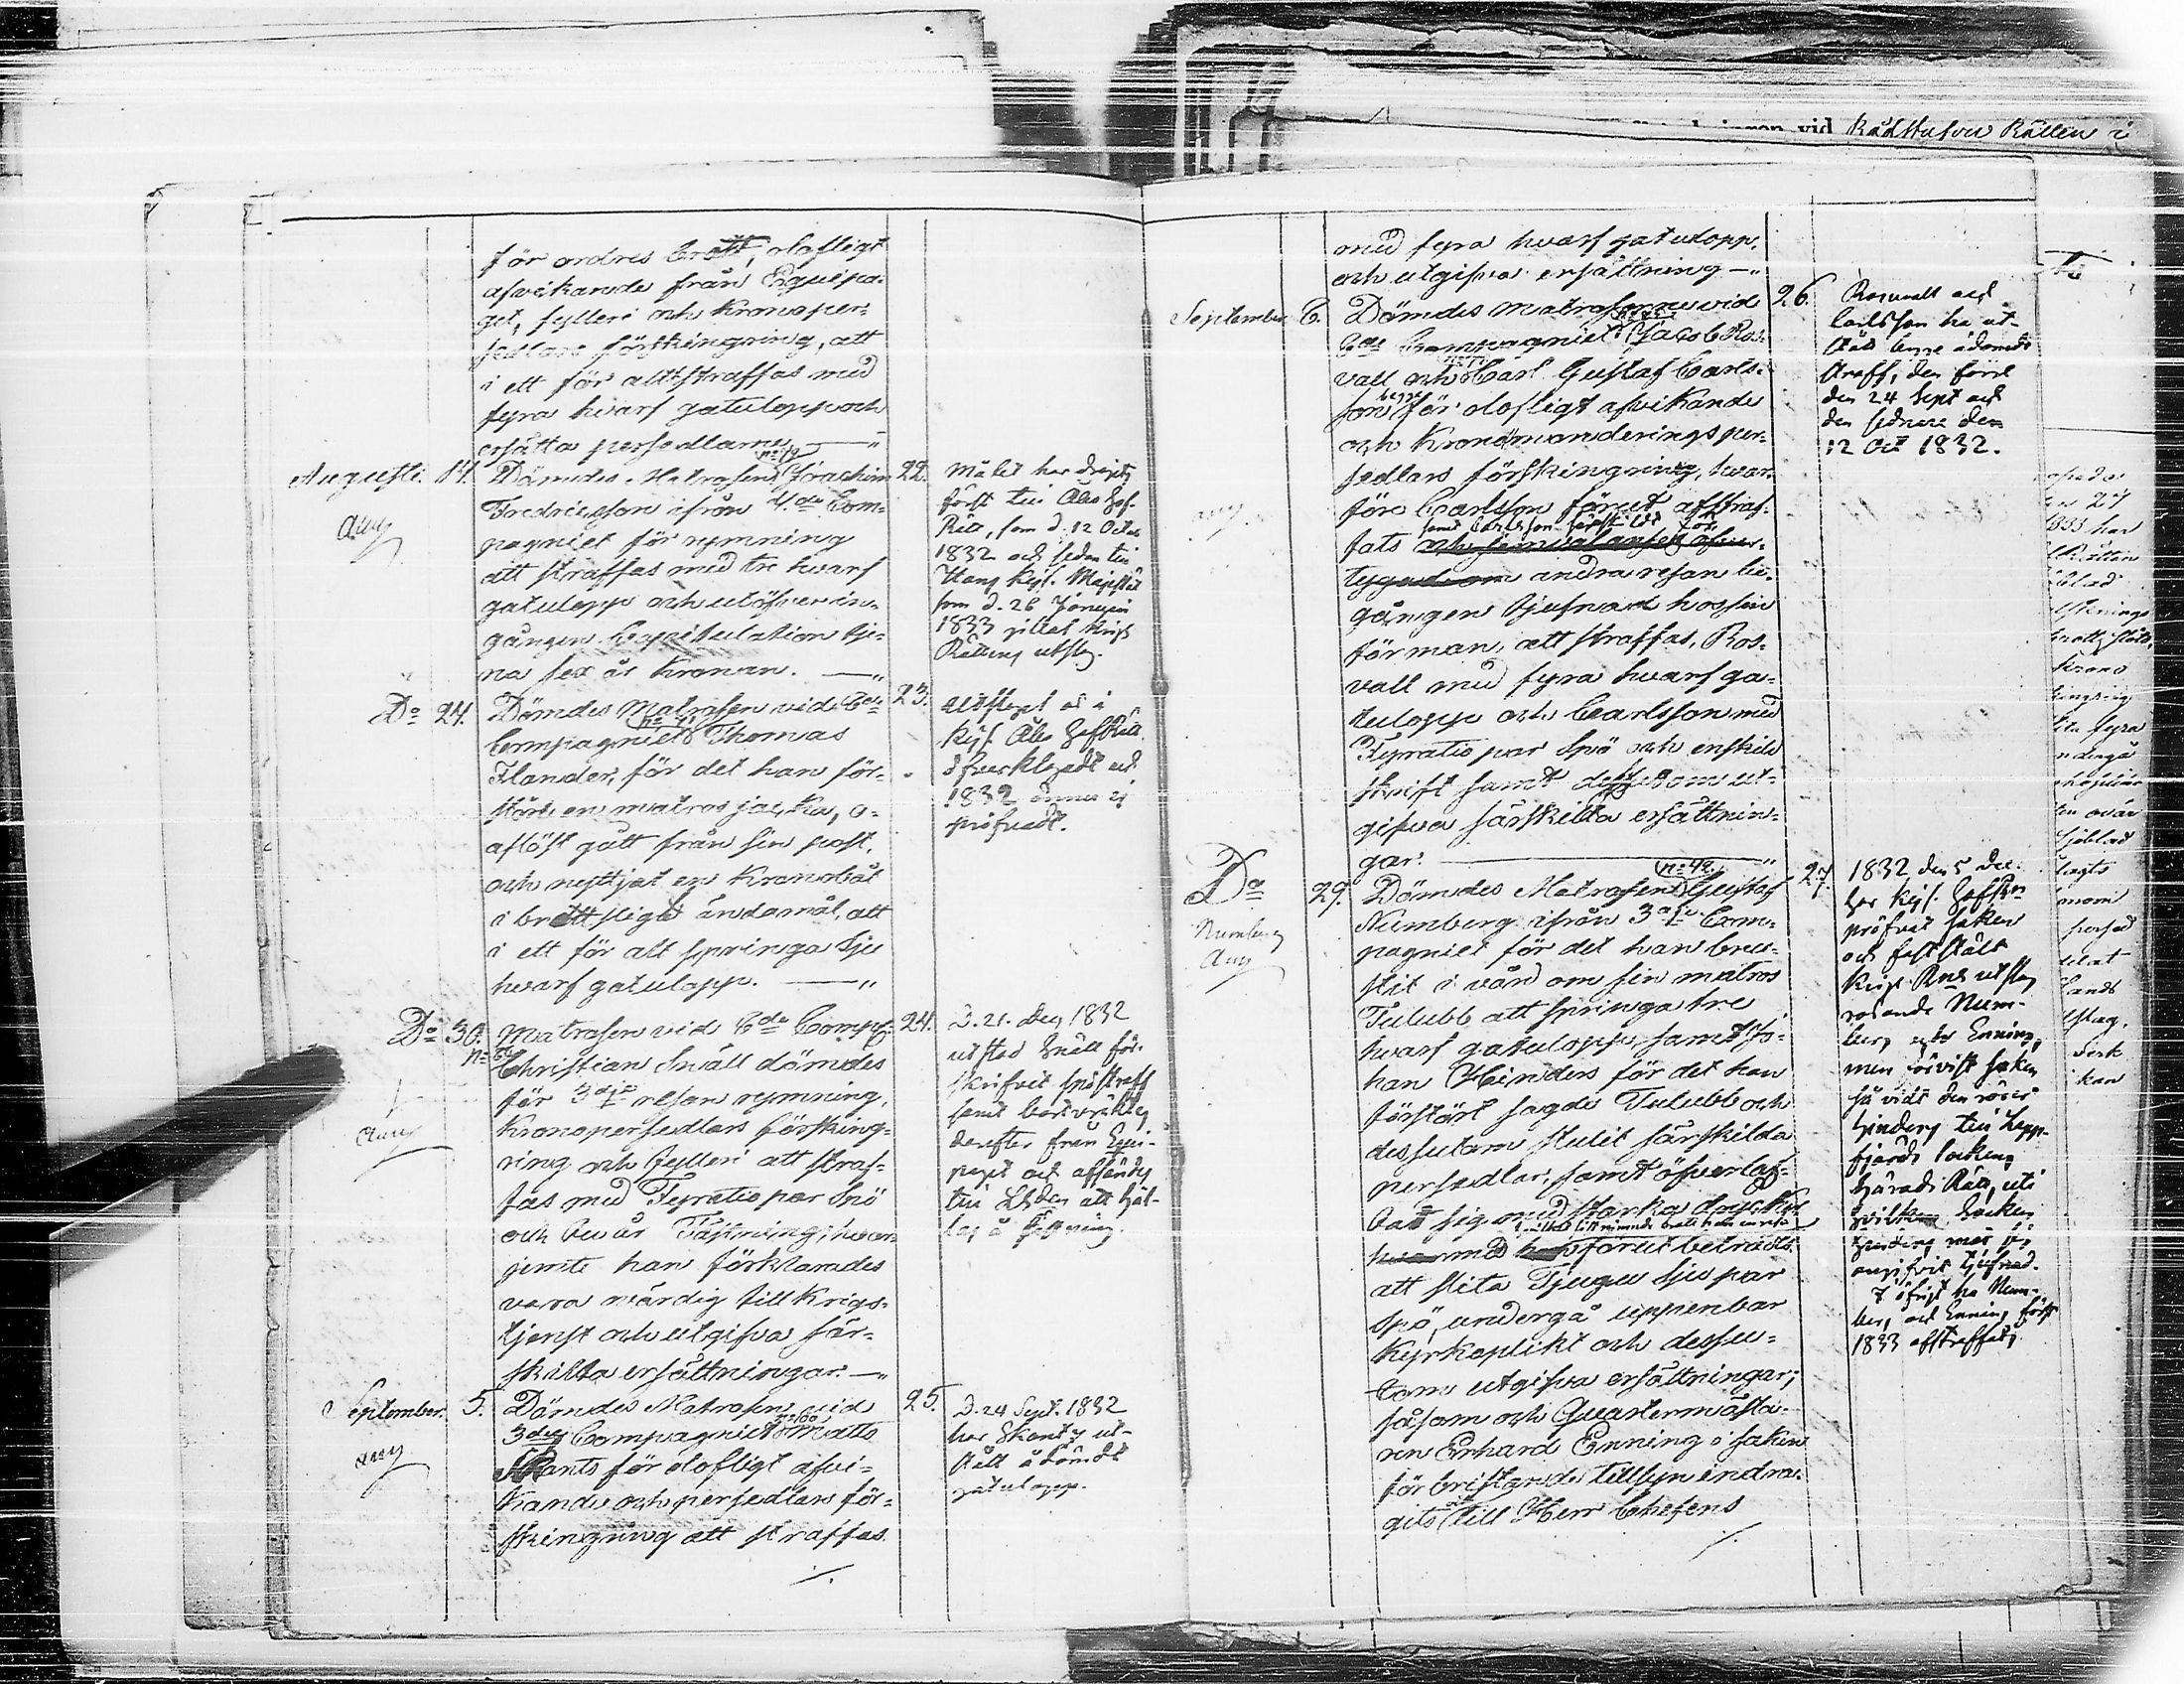 Rådstufvu Rätten i
för ordres brott, olofligt
afvikande från Equipa-
get, fylleri och Kronoper-
sedlars förskingring, att
i ett för allt straffas med
fyra hvarf gatulopp och
ersätta persedlarne —"
Augusti. 14. Dömdes Matrosen Joachim
Fredricsson ifrån 4.de Com-
pagniet för rymning
att straffas med tre hvarf
gatulopp och utöfver in-
gången Capitulation tje-
na sex år Kronan. —"
22. Målet har dragits
först till Åbo Hof-
Rätt, som d. 12 Octob
1832 och sedan till
Hans Kejs. Majestät
som d. 26
1833 gillat Krigs
Rättens utslag.
Do 24. Dömdes Matrosen vid 6de
Compagniet Thomas
Flander, för det han för-
stört en matros jacka, o-
aflöst gått från sin post,
och nyttjat en Kronobåt
i brottsligt ändamål, att
i ett för allt springa sju
hvarf gatulopp. —"
23. Utslaget är i
Kejs. Åbo HofRätt
öfverklagadt och
1832 ännu ej
pröfvadt.
Do 30. Matrosen vid 6de Comp.
Christian Snäll dömdes
för 3dje resan rymning,
Kronopersedlars försking-
ring och fylleri att straf-
fas med Fyratio par Spö
och två år Fästning; hvar-
jemte han förklarades
vara ovärdig till Krigs-
tjenst och utgifva sär-
skilta ersättningar. —"
24. D. 21. Dec 1832
utstod Snäll för-
skrifvit spöstraff
samt bortvräktes
derefter från Equi-
paget och afsändes
till
å Fästning.
September. 5. Dömdes Matrosen vid
3dje Compagniet n:o 100 Matts
Skants för olofligt afvi-
kande och persedlars för-
skingring att straffas
25. D. 24 Sept. 1832
har Skants ut-
stått ådömdt
gatulopp.
med fyra hvarf gatulopp.
och utgifva ersättning —"
September 6. Dömdes Matroserne vid
6de Compagniet Jacob Ros-
vall och Carl Gustaf Carls-
son begge för olofligt afvikande
och Kronomunderingsper-
sedlars förskingring, hvar-
före Carlsson förut afstraf-
fats samt Carlsson särskildt för
andra resan be-
gången tjufnad hos sin
förman, att straffas, Ros-
vall med fyra hvarf ga-
tulopp och Carlsson med
Fyratio par Spö och enskild
skrift samt dessutom ut-
gifva särskilta ersättnin-
gar. —"
26. Rosvall och
Carlsson ha ut-
stått begge ådömde
straff, den förre
den 24 Sept och
den sednare den
12 Oct 1832.
Do 29. Dömdes Matrosen n:o 42 Gustaf
Numberg ifrån 3dje Com-
pagniet för det han bru-
stit i vård om sin matros
Tulubb att springa tre
hvarf gatulopp, samt Jo-
han Hinders för det han
förstört sagde Tulubb och
dessutom stulit särskilda
persedlar, samt öfverlas-
tat sig med starka drycker
förut beträdts,
att slita Tjugu sju par
spö, undergå uppenbar
Kyrkoplikt och dessu-
tom utgifva ersättningar;
såsom och Quartermästa-
ren Erhard Enning i saken
för bristande tillsyn indra-
gits till Herr Chefens
Numberg
27. 1832 den 5 Dec.
har Kejs. HofRn
pröfvat saken
och fastställt
Krigs Rns utslag
rörande Num-
berg och Enning,
men förvist saken
så vidt den rörer
Hinders till Lapp-
fjärds sockens
Härads Rätt, uti
hvilken Socken
angifvit tjufnad.
I öfrigt ha Num-
berg och Enning först
1833 afstraffats.